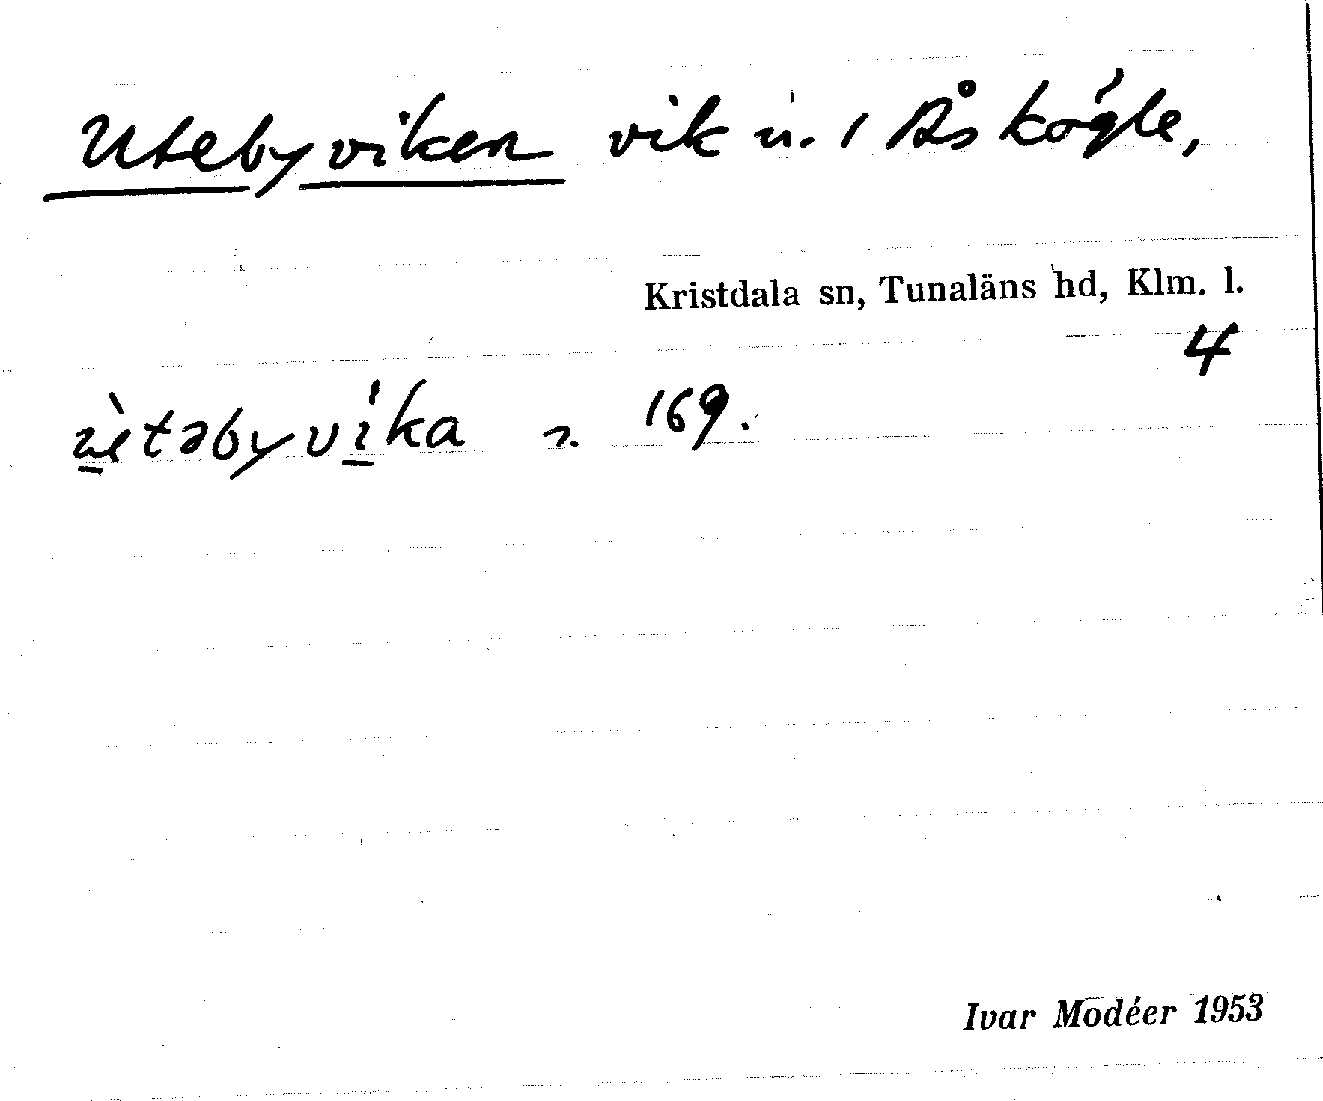 Utebyviken vik n. i Åskögle,
Kristdala sn, Tunaläns hd, Klm. l.
4
ùtəbyvíka 169.
Ivar Modéer 1953